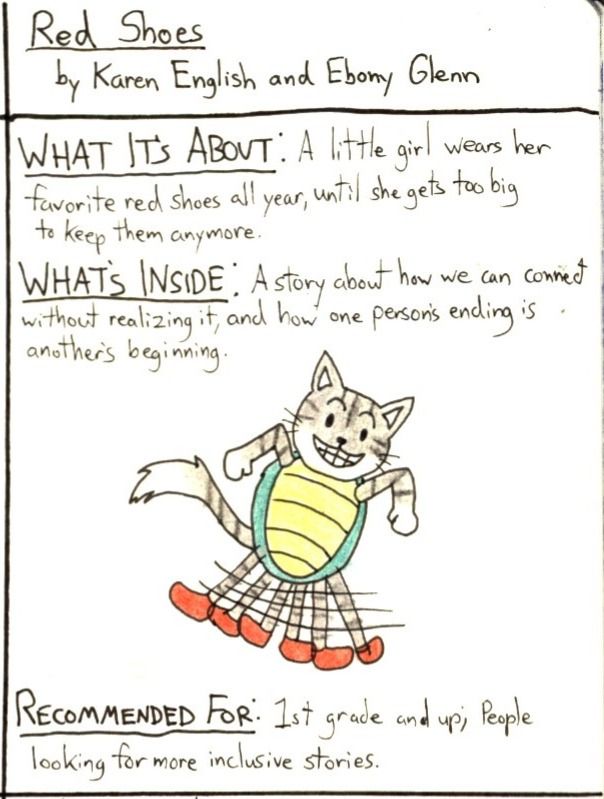 Red Shoes
by Karen English and Ebony Glenn
WHAT IT'S ABOUT: A little girl wears her
favorite red shoes all year, until she gets too big
to keep them anymore.
WHAT'S INSIDE: A story about how we can connect
without realizing it, and how one person's ending is
another's beginning.
RECOMMENDED FOR: 1st grade and up; People
looking for more inclusive stories.